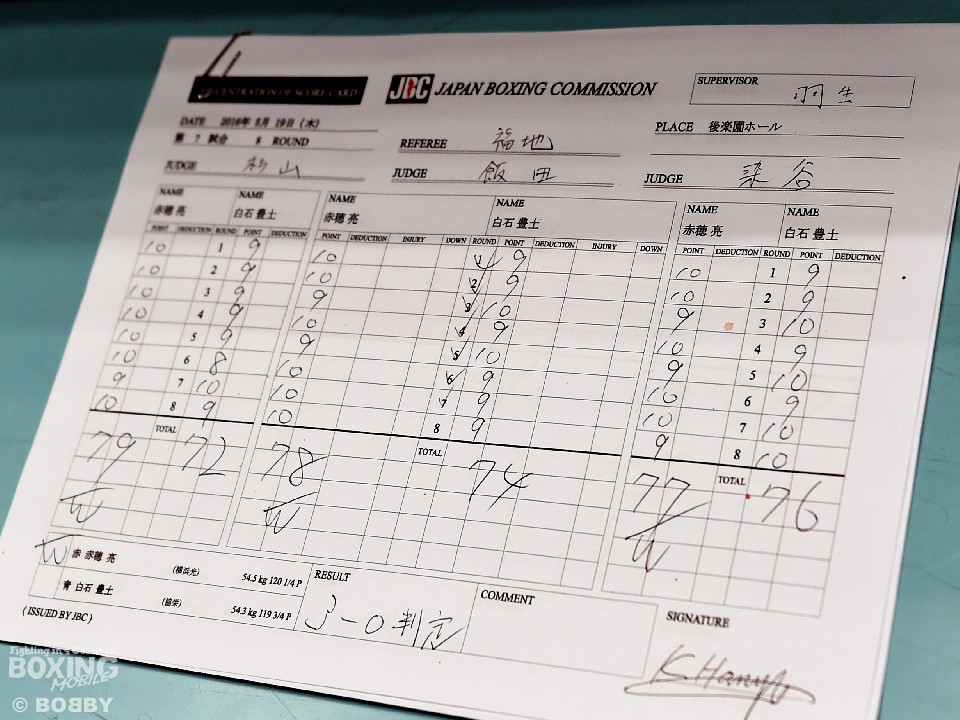 CENTRATION OF SCORE CARD
JBC JAPAN BOXING COMMISSION
SUPERVISOR 羽生
DATE 2016年 5月 19日(木)
第 7 試合 8 ROUND
REFEREE 福地
PLACE 後楽園ホール
JUDGE 杉山
JUDGE 飯田
JUDGE 染谷
NAME NAME NAME NAME NAME NAME
赤穂 亮 白石 豊土 赤穂 亮 白石 豊土 赤穂 亮 白石 豊土
POINT DEDUCTION ROUND POINT DEDUCTION POINT DEDUCTION INJURY DOWN ROUND POINT DEDUCTION INJURY DOWN POINT DEDUCTION ROUND POINT DEDUCTION
10 1 9 10 1 9 10 1 9
10 2 9 10 2 9 10 2 9
10 3 9 9 3 10 9 3 10
10 4 9 10 4 9 10 4 9
10 5 9 9 5 10 9 5 10
10 6 8 10 6 9 10 6 9
9 7 10 10 7 9 10 7 10
10 8 9 10 8 9 9 8 10
TOTAL TOTAL TOTAL
79 72 78 74 77 76
W W W
W 赤 赤穂 亮 (横浜光) 54.5 kg 120 1/4 P
青 白石 豊土 (協栄) 54.3 kg 119 3/4 P
(ISSUED BY JBC)
RESULT
3-0 判定
COMMENT
SIGNATURE
Fighting in a
BOXING
MOBILE
© BOBBY